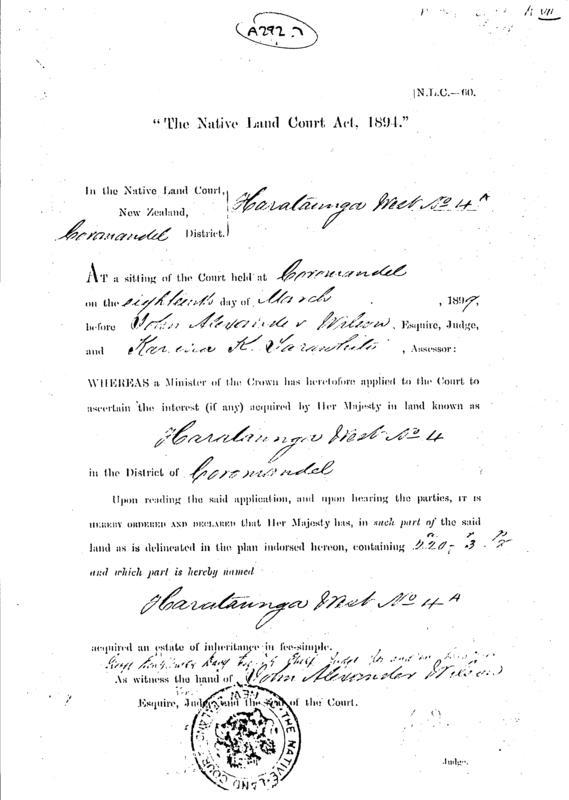 A292.
VII
[N.L.C.—60.
"The Native Land Court Act, 1894."
In the Native Land Court,
New Zealand,
Coromandel District.
Harataunga West No 4A
AT a sitting of the Court held at Coromandel
on the eighteenth day of March , 1897,
before John Alexander Wilson, Esquire, Judge,
and K. , Assessor:
WHEREAS a Minister of the Crown has heretofore applied to the Court to
ascertain the interest (if any) acquired by Her Majesty in land known as
Harataunga West No 4
in the District of Coromandel
Upon reading the said application, and upon hearing the parties, IT IS
HEREBY ORDERED AND DECLARED that Her Majesty has, in such part of the said
land as is delineated in the plan indorsed hereon, containing
and which part is hereby named
Harataunga West No 4A
acquired an estate of inheritance in fee-simple.
Chief Judge for and on
As witness the hand of John Alexander Wilson
Esquire, Judge and the seal of the Court.
THE NATIVE LAND COURT NEW ZEALAND
Judge.